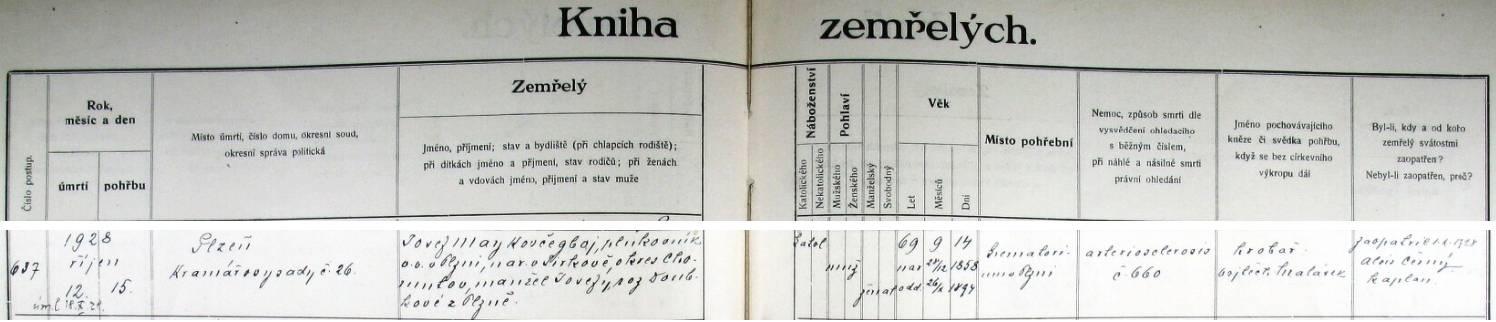 Kniha zemřelých.
Číslo postup.
Rok,
měsíc a den
úmrtí
pohřbu
Místo úmrtí, číslo domu, okresní soud,
okresní správa politická
Zemřelý
Jméno, příjmení; stav a bydliště (při chlapcích rodiště);
při dítkách jméno a příjmení, stav rodičů; při ženách
a vdovách jméno, příjmení a stav muže
Náboženství
Katolického
Nekatolického
Pohlaví
Mužského
Ženského
Manželský
Svobodný
Věk
Let
Měsíců
Dní
Místo pohřební
Nemoc, způsob smrti dle
vysvědčení ohledacího
s běžným číslem,
při náhlé a násilné smrti
právní ohledání
Jméno pochovávajícího
kněze či svědka pohřbu,
když se bez církevního
výkropu dál
Byl-li, kdy a od koho
zemřelý svátostmi
zaopatřen?
Nebyl-li zaopatřen, proč?
637
1928
říjen
12. 15.
Plzeň
Kramářovy sady č. 26.
plukovník
v. v. v Plzni, nar. v Jirkově, okres Cho-
mutov, manžel Josefy, roz. Doub-
kové z Plzně.
katol
muž
ženat
69 9 14
nar 28/12 1858
odd. 26/2 1894
Krematori-
um v Plzni
arteriosclerosis
č. 660
hrobař
Vojtěch
Alois Černý
kaplan.